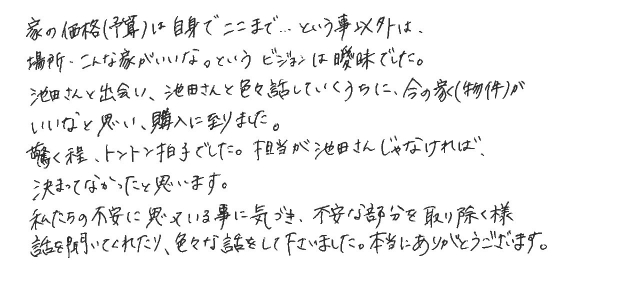 家の価格(予算)は自身でここまで…という事以外は、
場所・こんな家がいいな。という ビジョンは曖昧でした。
池田さんと出会い、池田さんと色々話していくうちに、今の家(物件)が
いいなと思い、購入に至りました。
驚く程、トントン拍子でした。担当が池田さんじゃなければ、
決まってなかったと思います。
私たちの不安に思っている事に気づき、不安な部分を取り除く様
話を聞いてくれたり、色々な話をして下さいました。本当にありがとうございます。